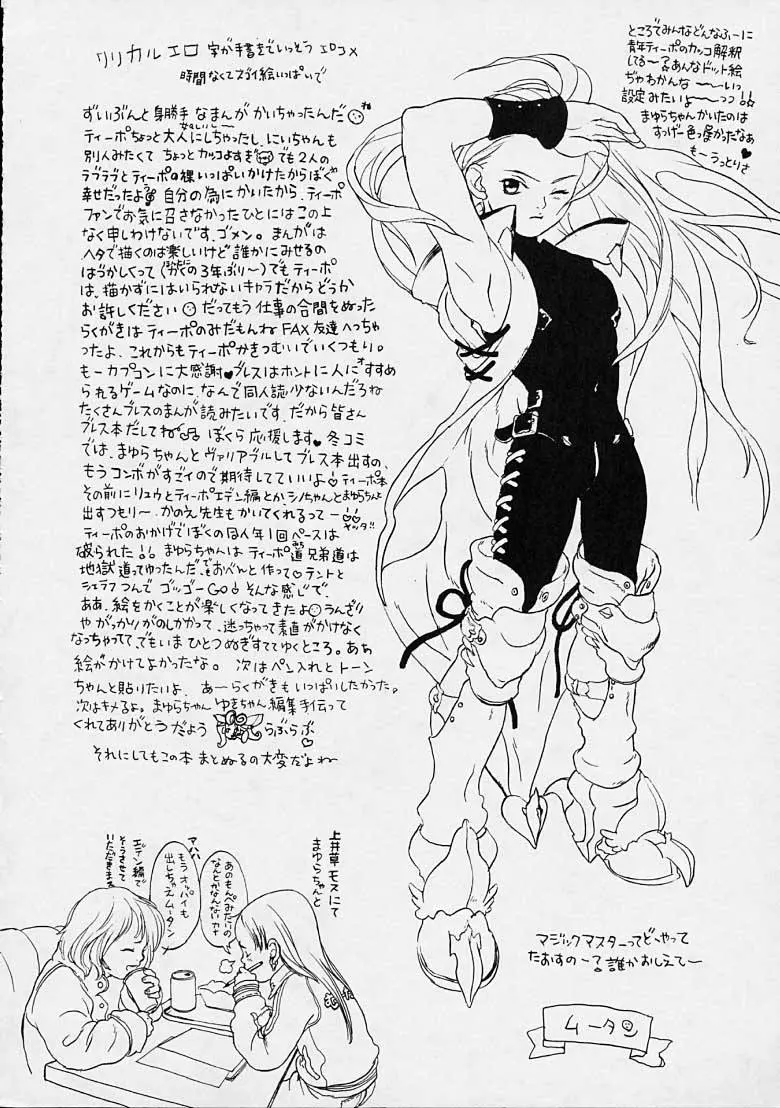 リリカルエロ 字が手書きでいっそう エロコメ
時間なくてズライ絵いっぱいで
ずいぶんと身勝手なまんがかいちゃったんだ ね
ティーポちょっと大人にしちゃったし、にいちゃんも
別人みたくて ちょっとカッコよすぎ でも2人の
ラブラブとティーポの裸いっぱいかけたからぼく
幸せだったよ 自分の為にかいたから、ティーポ
ファンでお気に召さなかったひとにはこの上
なく申しわけないです、ゴメン。まんがは
ヘタで描くのは楽しいけど誰かにみせるの
はづかしくって(3年ぶり〜)でもティーポ
は、描かずにはいられないキャラだからどうか
お許しください だってもう仕事の合間をぬった
らくがきは ティーポのみだもんね FAX友達へっちゃ
ったよ、これからもティーポかきつむいでいくつもり。
もーカプコンに大感謝♥ブレスはホントに人にすすめ
られるゲームなのに、なんで同人誌少ないんだろね
たくさんブレスのまんが読みたいです。だから皆さん
ブレス本だしてね ぼくら応援します♥冬コミ
では、まゆらちゃんとヴァリアブルしてブレス本出すの、
もうコンボがすごイので期待してていいよ ティーポ本
その前にリュウとティーポエデン編とかシノちゃんとまゆらちゃんと
出すつもり〜 かのえ先生もかいてくれるってー
ティーポのおかげでぼくの同人年1回ペースは
破られた!! まゆらちゃんは ティーポ道兄弟道は
地獄道ってゆったんだ でもおべんと作って テントと
シェラフつんで ゴッゴーGo! そんな感じで
ああ、絵をかくことが楽しくなってきたよ うんざり
やがっかりがのしかかって、迷っちゃって素直がかけなく
なっちゃってて、でもいまひとつぬぎすててゆくところ。あぁ
絵がかけてよかったな。 次はペン入れとトーン
ちゃんと貼りたいよ、あーらくがきもいっぱいしたかった。
次はキメるよ。まゆらちゃん ゆきちゃん編集手伝って
くれてありがとうだよう らぶらぶ♥
それにしてもこの本 まとめるの大変だよね
ところでみんなどんなふーに
青年ティーポのカッコ解釈
してる〜? あんなドット絵
ぢゃわかんな〜〜いっ
設定みたいよ〜〜っっ!!
まゆらちゃんかいたのは
すっげー色っぽかったなぁ
もーうっとりさ♥
上井草モスにて
まゆらちゃんと
あのもんぺみたいの
なんとかなんないカナ
アハハ
もうオッパイも
出しちゃえムータン
エデン編で
そうさせて
いただきます
マジックマスターってどーやって
たおすのー? 誰かおしえてー
ムータン